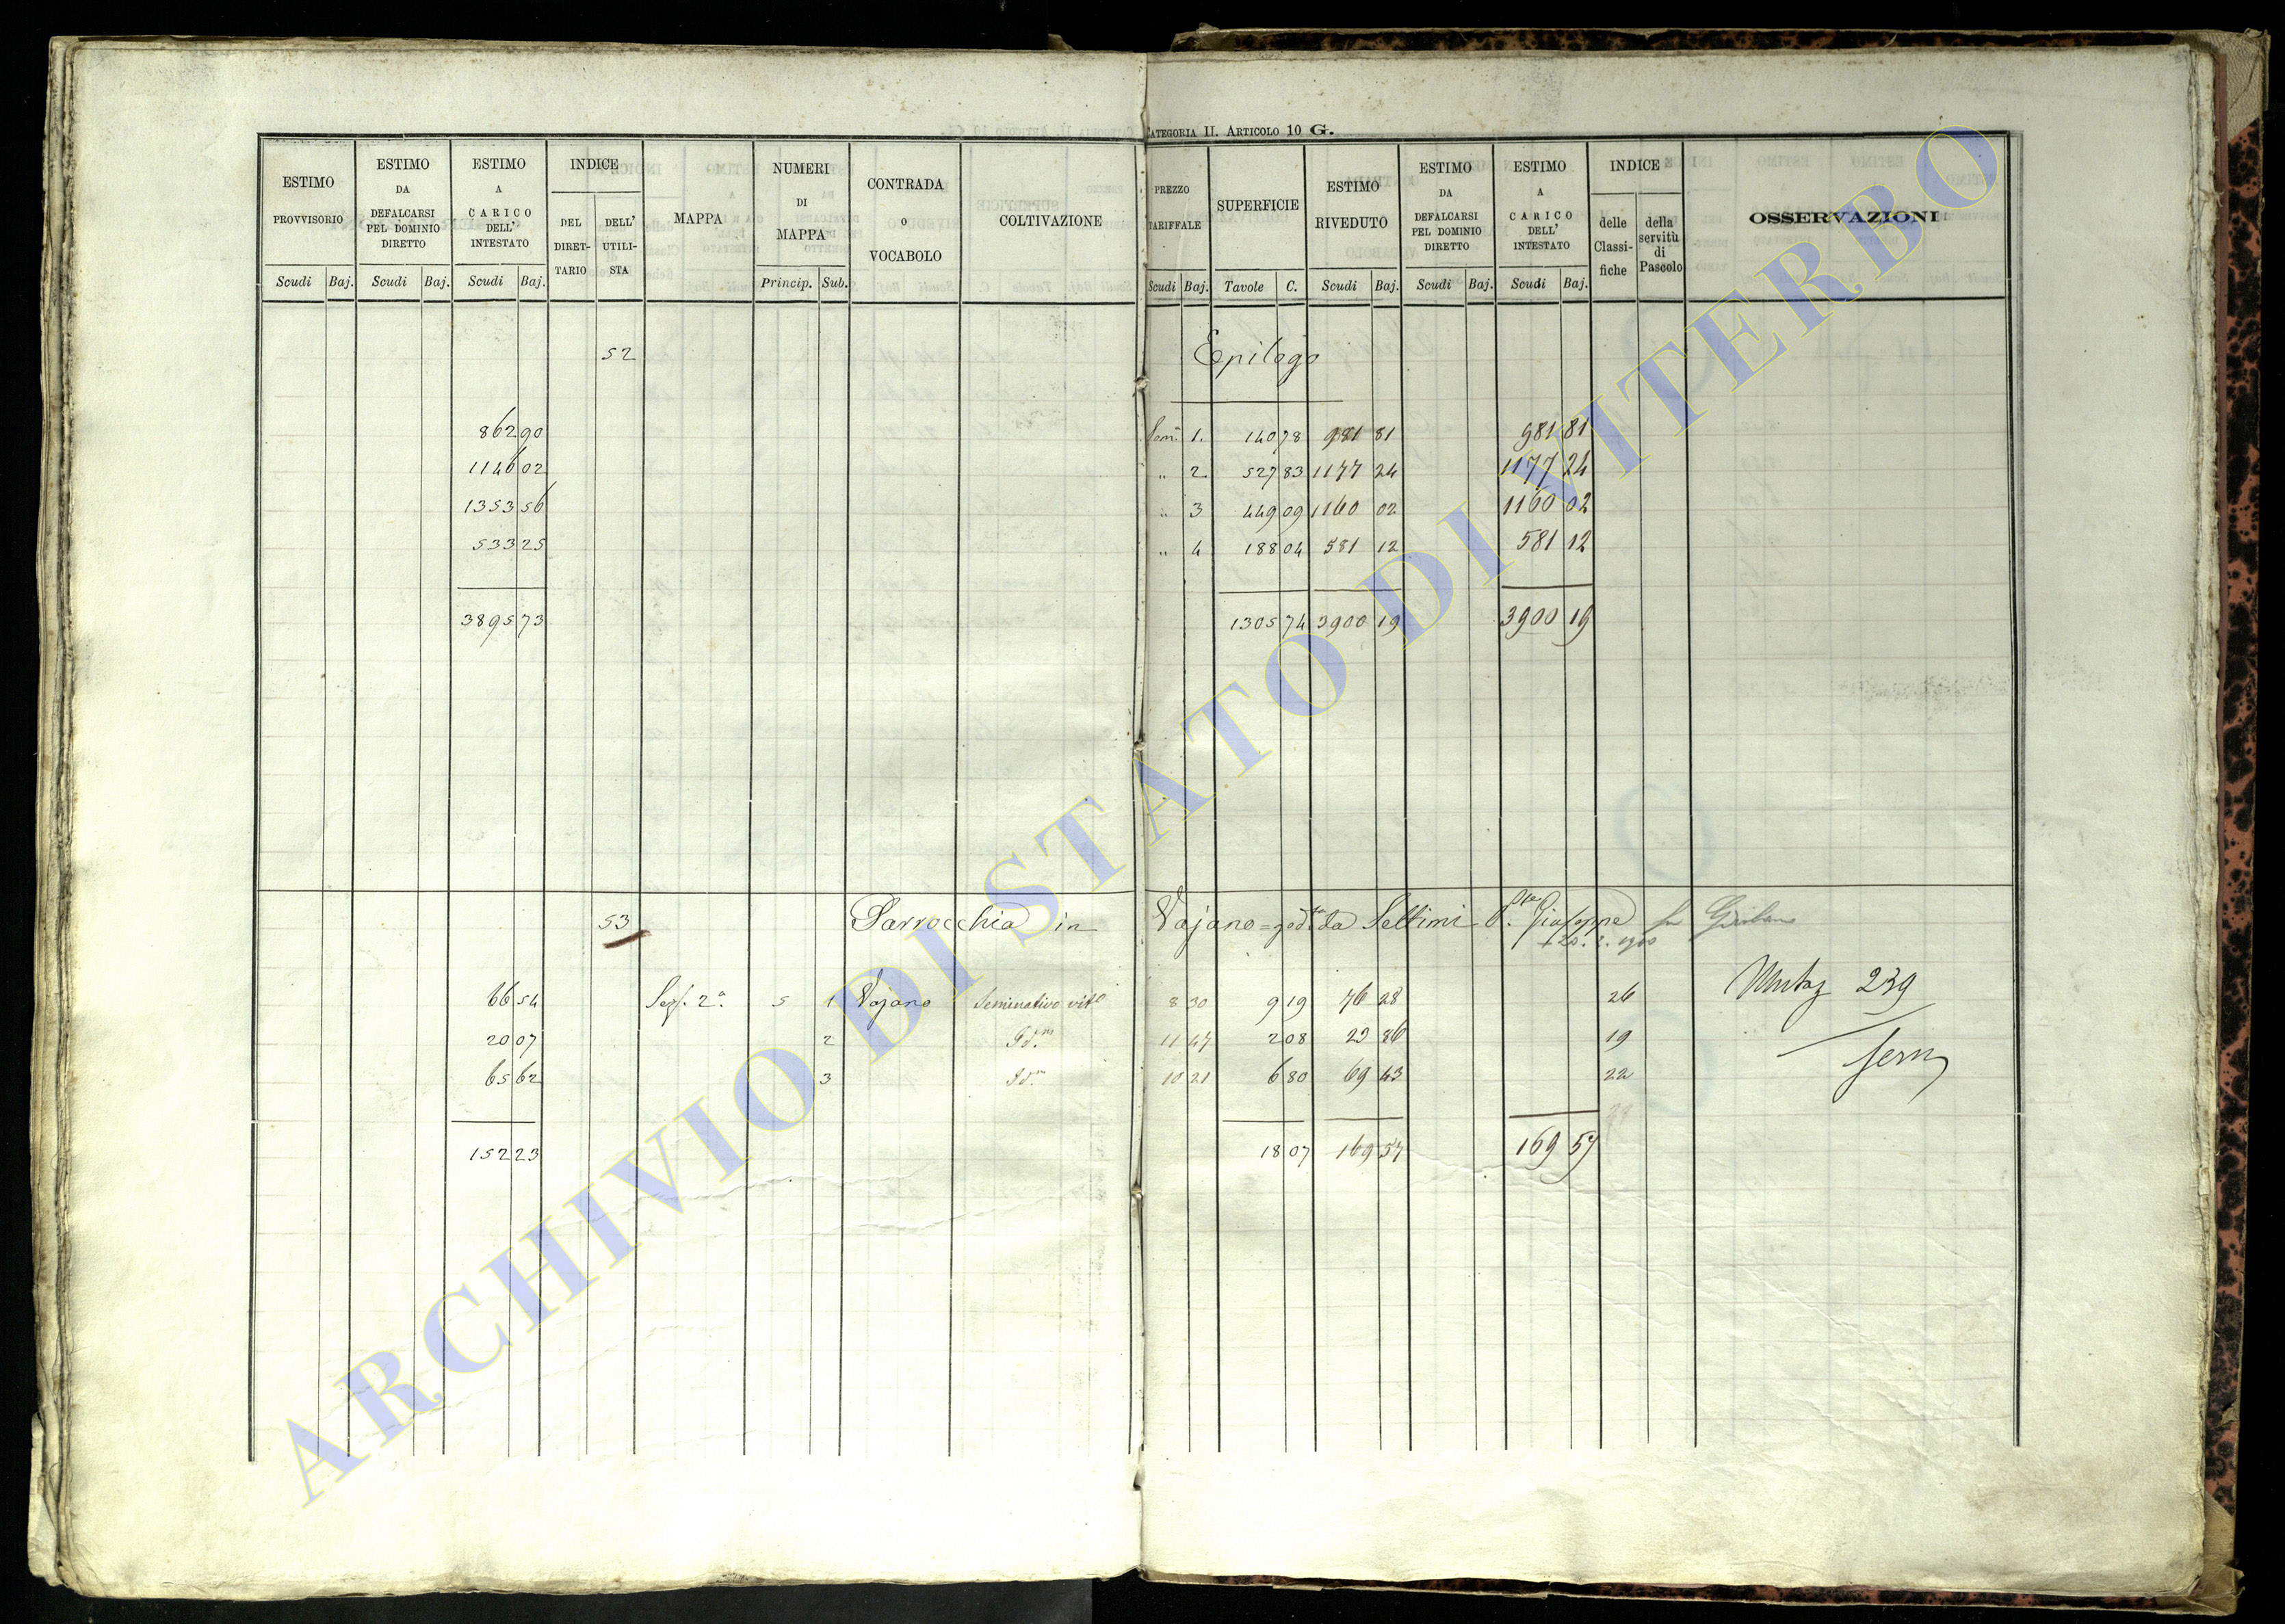 CATEGORIA II. ARTICOLO 10 G.
ESTIMO PROVVISORIO
ESTIMO DA DEFALCARSI PEL DOMINIO DIRETTO
ESTIMO A CARICO DELL' INTESTATO
INDICE
DEL DIRET-TARIO
DELL' UTILI-STA
MAPPA
NUMERI DI MAPPA
CONTRADA O VOCABOLO
COLTIVAZIONE
PREZZO TARIFFALE
SUPERFICIE
ESTIMO RIVEDUTO
ESTIMO DA DEFALCARSI PEL DOMINIO DIRETTO
ESTIMO A CARICO DELL' INTESTATO
INDICE
delle Classi-fiche
della servitù di Pascolo
OSSERVAZIONI
Scudi Baj. Scudi Baj. Scudi Baj. Princip. Sub. Scudi Baj. Tavole C. Scudi Baj. Scudi Baj. Scudi Baj.
52 Epilogo
862 90 Sem. 1. 140 78 981 81 981 81
1146 02 " 2 527 83 1177 24 1177 24
1353 56 " 3 449 09 1160 02 1160 02
533 25 " 4 188 04 581 12 581 12
3895 73 1305 74 3900 19 3900 19
53 Parrocchia in Vajano = godta da Settimi Giuseppe
66 54 Sez. 2a 5 1 Vajano Seminativo vito 8 30 9 19 76 28 26 239
20 07 2 Idm 11 47 2 08 23 86 19
65 62 3 Idm 10 21 6 80 69 43 22
152 23 18 07 169 57 169 57
ARCHIVIO DI STATO DI VITERBO